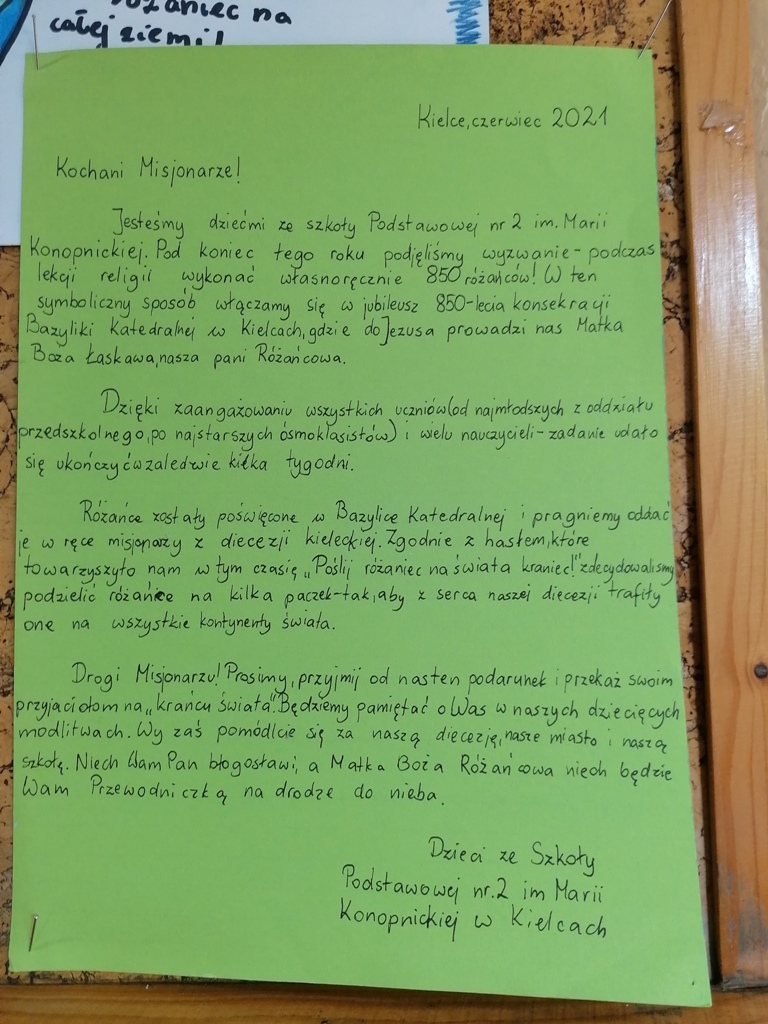 różaniec na
całej ziemi!
Kielce, czerwiec 2021
Kochani Misjonarze!
Jesteśmy dziećmi ze szkoły Podstawowej nr 2 im. Marii
Konopnickiej. Pod koniec tego roku podjęliśmy wyzwanie - podczas
lekcji religii wykonać własnoręcznie 850 różańców! W ten
symboliczny sposób włączamy się w jubileusz 850-lecia konsekracji
Bazyliki Katedralnej w Kielcach, gdzie do Jezusa prowadzi nas Matka
Boża Łaskawa, nasza pani Różańcowa.
Dzięki zaangażowaniu wszystkich uczniów (od najmłodszych z oddziału
przedszkolnego, po najstarszych ósmoklasistów) i wielu nauczycieli - zadanie udało
się ukończyć w zaledwie kilka tygodni.
Różańce zostały poświęcone w Bazylice Katedralnej i pragniemy oddać
je w ręce misjonarzy z diecezji kieleckiej. Zgodnie z hasłem, które
towarzyszyło nam w tym czasię „Poślij różaniec na świata kraniec!" zdecydowaliśmy
podzielić różańce na kilka paczek - tak, aby z serca naszej diecezji trafiły
one na wszystkie kontynenty świata.
Drogi Misjonarzu! Prosimy, przyjmij od nas ten podarunek i przekaż swoim
przyjaciołom na „krańcu świata". Będziemy pamiętać o Was w naszych dziecięcych
modlitwach. Wy zaś pomódlcie się za naszą diecezję, nasze miasto i naszą
szkołę. Niech Wam Pan błogosławi, a Matka Boża Różańcowa niech będzie
Wam Przewodniczką na drodze do nieba.
Dzieci ze Szkoły
Podstawowej nr. 2 im Marii
Konopnickiej w Kielcach